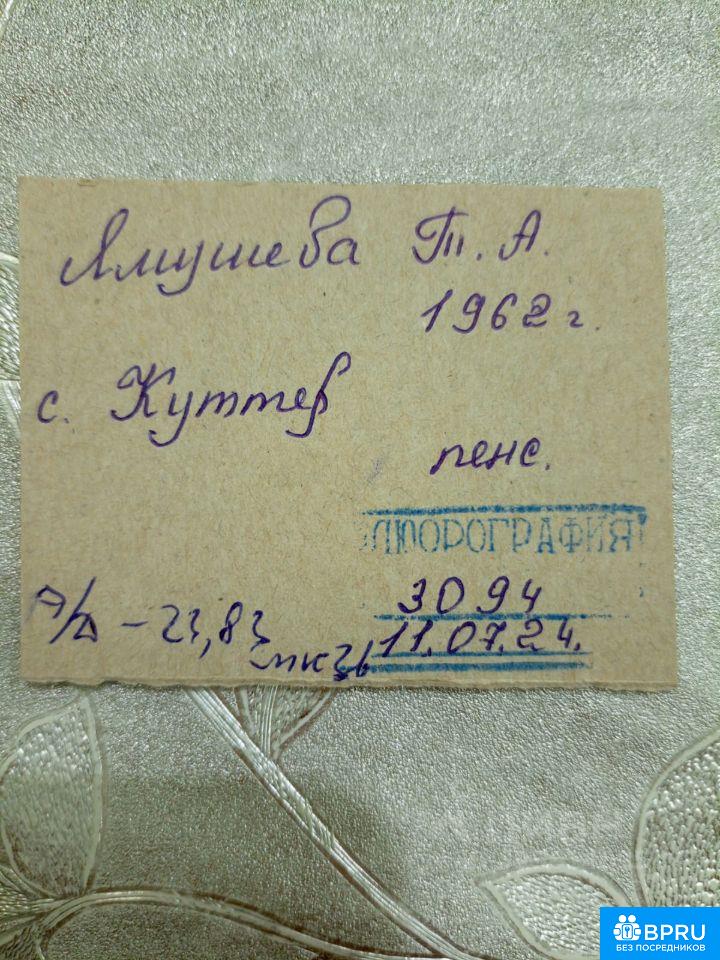 Ямушева Т. А.
1962 г.
с. Кутмер
пенс.
ЛЮОРОГРАФИЯ
3094
11.07.24.
Д/Д - 23,83
мкЗв
BPRU
БЕЗ ПОСРЕДНИКОВ